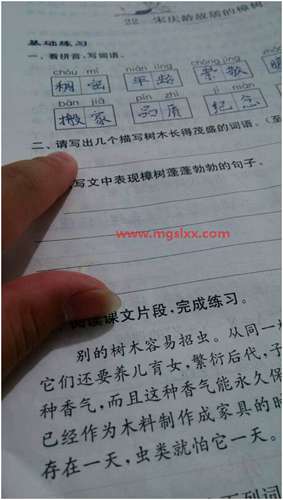 22 宋庆龄故居的樟树
基础练习
一、看拼音，写词语。
chóu mì nián líng chóng jìng
稠密 年龄 崇敬
bān jiā pǐn zhì jì niàn
搬家 品质 纪念
二、请写出几个描写树木长得茂盛的词语。（至
写文中表现樟树蓬蓬勃勃的句子。
www.mgslxx.com
阅读课文片段，完成练习。
别的树木容易招虫。从同一
它们还要养儿育女，繁衍后代，子
种香气，而且这种香气能永久保
已经作为木料制作成家具的时
存在一天，虫类就怕它一天。